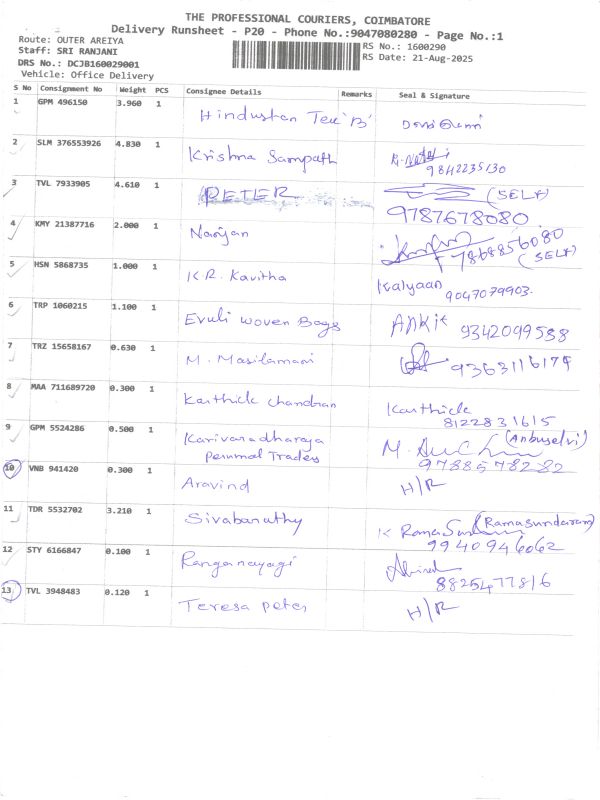 THE PROFESSIONAL COURIERS, COIMBATORE
Delivery Runsheet - P20 - Phone No.:9047080280 - Page No.:1
Route: OUTER AREIYA
RS No.: 1600290
Staff: SRI RANJANI
RS Date: 21-Aug-2025
DRS No.: DCJB160029001
Vehicle: Office Delivery
S No Consignment No Weight PCS Consignee Details Remarks Seal & Signature
1 GPM 496150 3.960 1 Hindustan Tex 'B'
2 SLM 376553926 4.830 1 Krishna Sampath
9842235130
3 TVL 7933905 4.610 1 PETER (SELF)
9787678080
4 KMY 21387716 2.000 1 Narjan
7868856080
(SELF)
5 HSN 5868735 1.000 1 K.R. Kavitha Kalyaan
9047079903.
6 TRP 1060215 1.100 1 Evuli woven Bags Ankit 9342099538
7 TRZ 15658167 0.630 1 M. Masilamani 9363116179
8 MAA 711689720 0.300 1 Karthick chandran Karthick
8122831615
9 GPM 5524286 0.500 1 Karivaradharaya (Anbuselvi)
Perumal Traders 9788578282
10 VNB 941420 0.300 1 Aravind H/R
11 TDR 5532702 3.210 1 Sivabarathy K (Ramasundaram)
9940946062
12 STY 6166847 0.100 1 Ranganayagi
8825477816
13 TVL 3948483 0.120 1 Teresa peter H/R